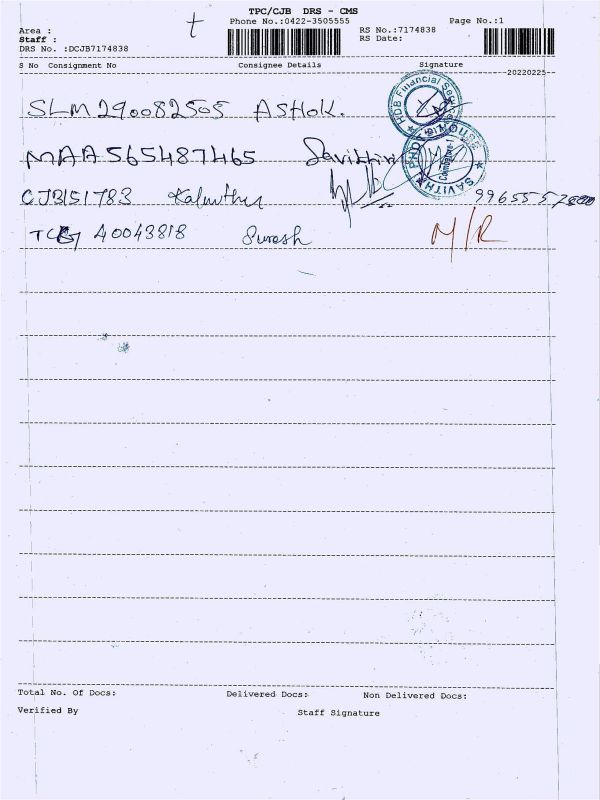 TPC/CJB DRS - CMS
t
Phone No.:0422-3505555
Page No.:1
Area :
RS No.:7174838
Staff :
RS Date:
DRS No. :DCJB7174838
S No Consignment No Consignee Details Signature
20220225
SLM290082505 ASHOK.
HDB Financial
MAA565487465 Savithiri
SAVITHRI PHOTO HOUSE
CJB151783
TCG A0043818 Suresh M/R
Total No. Of Docs: Delivered Docs: Non Delivered Docs:
Verified By Staff Signature